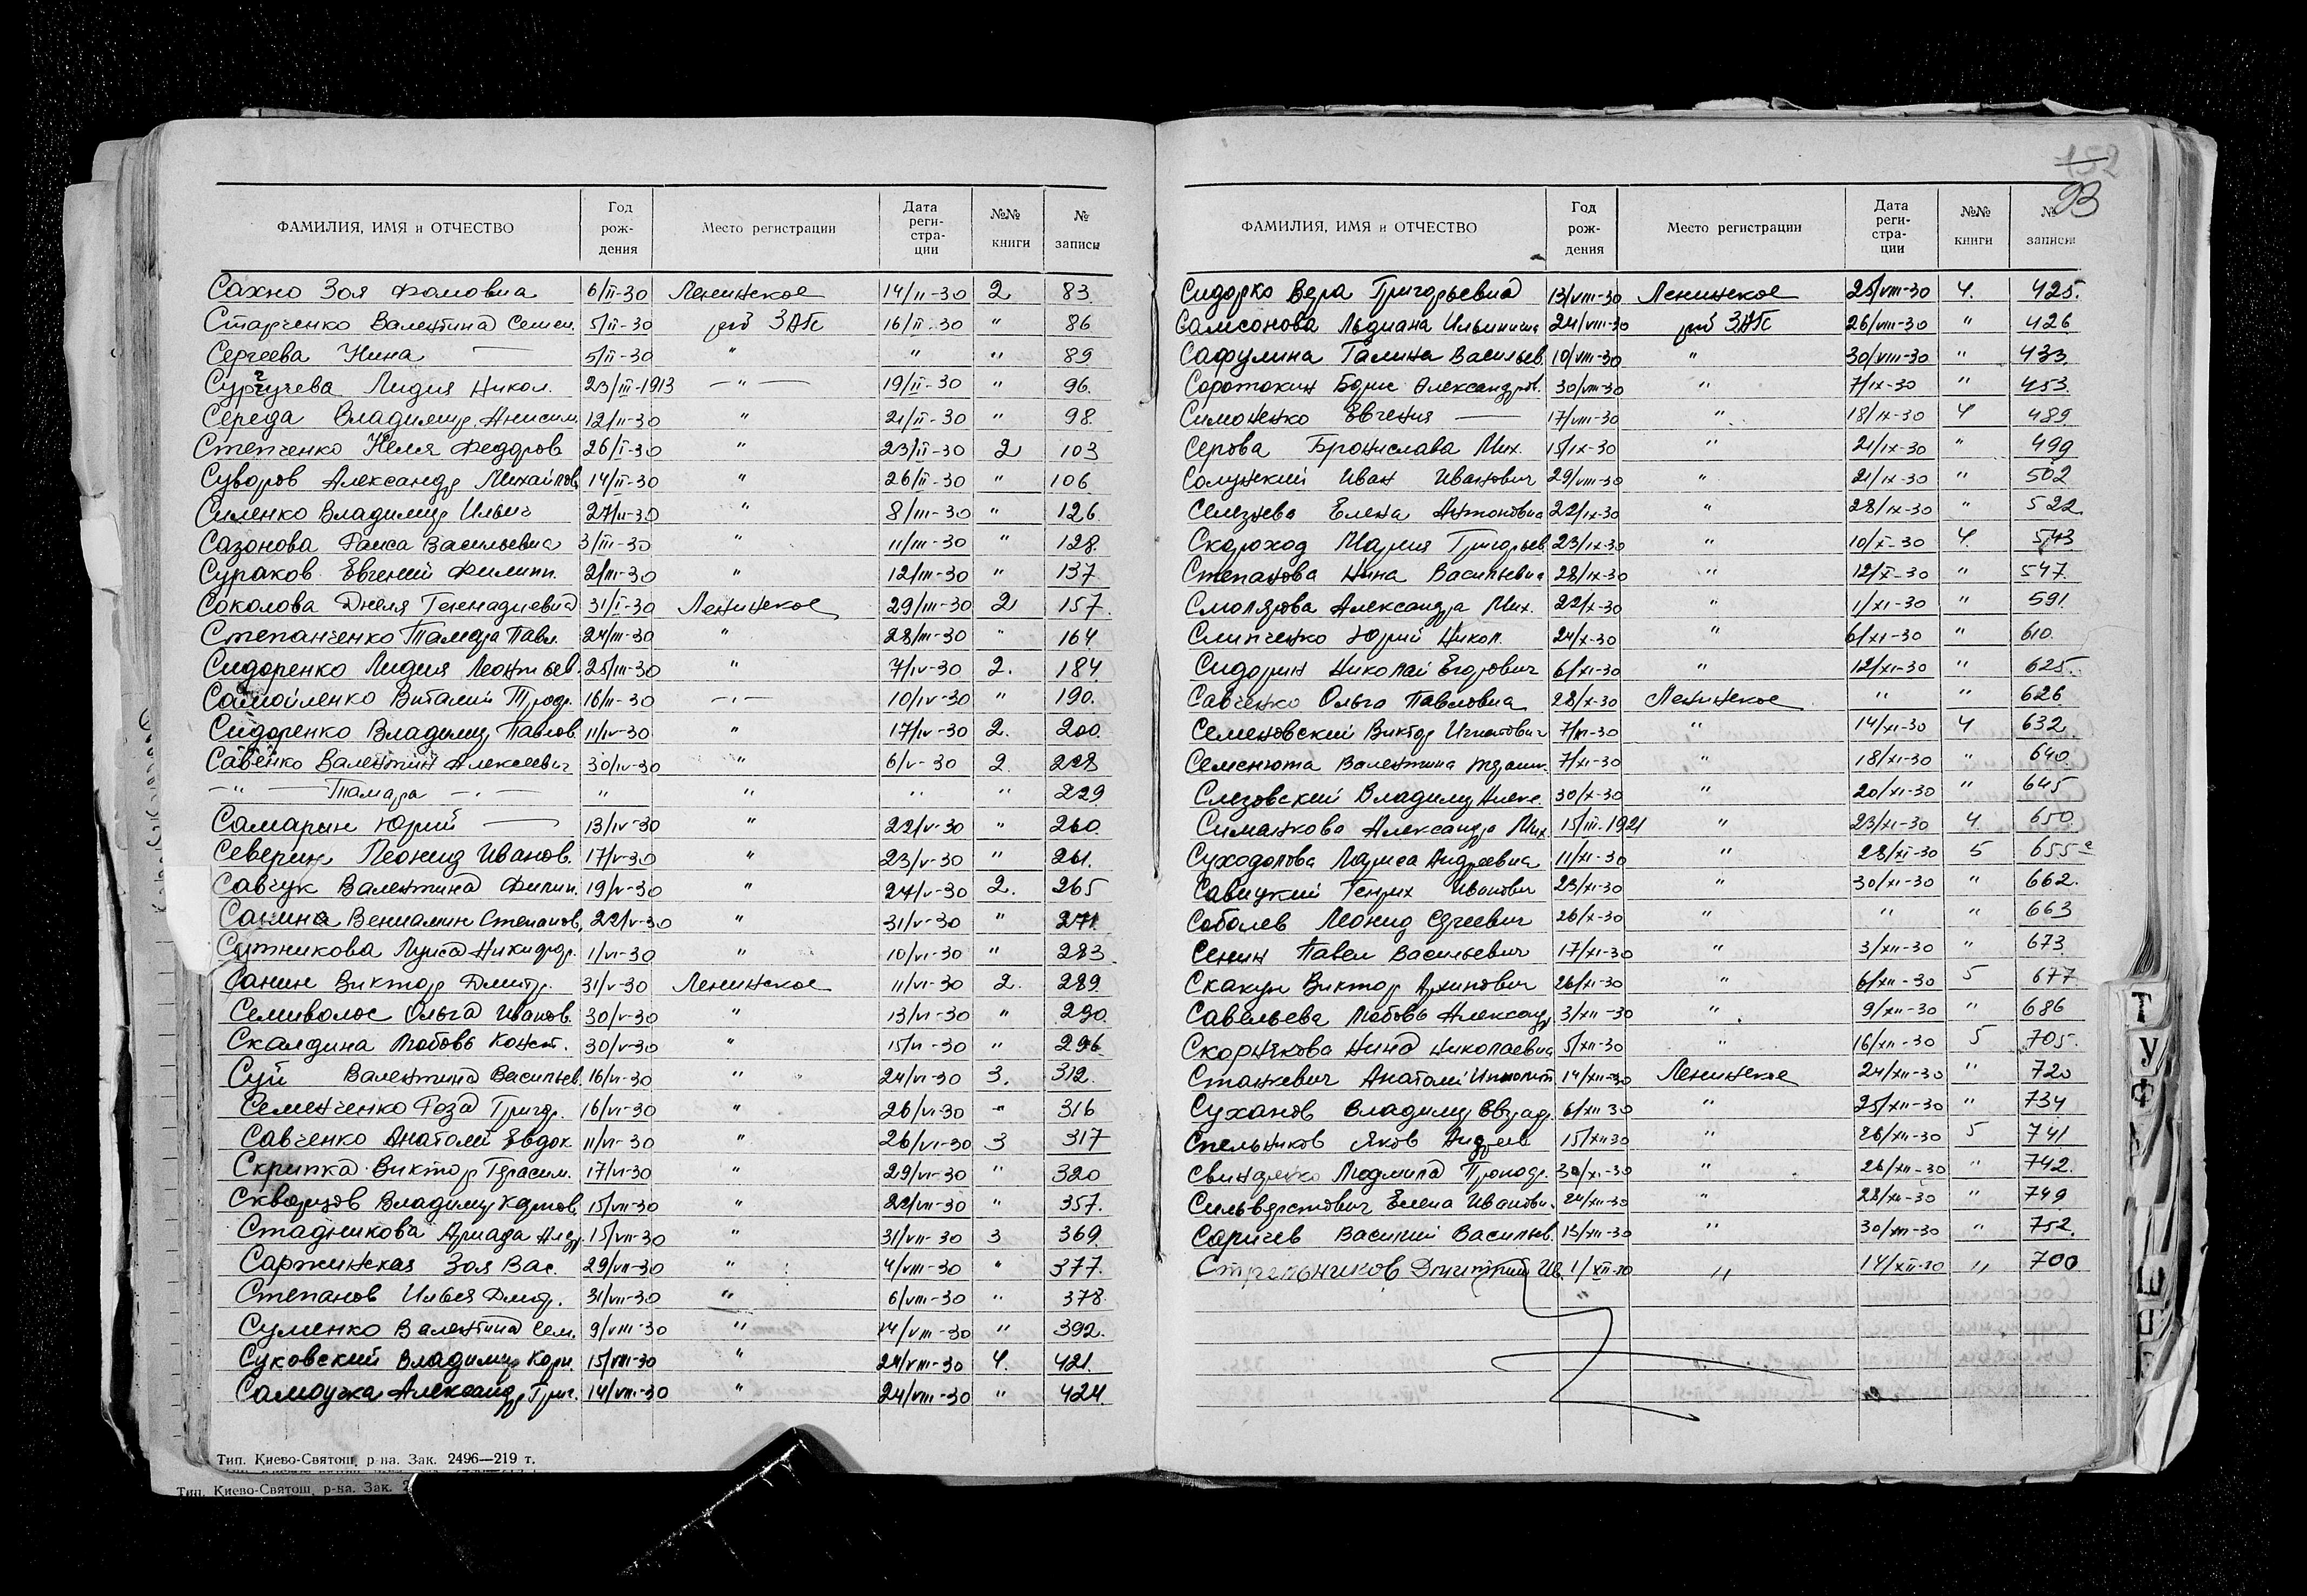 152
93
ФАМИЛИЯ, ИМЯ и ОТЧЕСТВО Год рож- дения Место регистрации Дата реги- стра- ции №№ книги № записи
Сахно Зоя Фомовна 6/II-30 Ленинское 14/II-30 2 83.
Старченко Валентина Семен. 5/II-30 рай ЗАГС 16/II-30 " 86
Сергеева Нина — 5/II-30 " " " 89
Сургучева Лидия Никол. 23/III-1913 —"— 19/II-30 " 96.
Середа Владимир Анисим. 12/II-30 " 21/II-30 " 98.
Степченко Неля Федоров 26/I-30 " 23/II-30 2 103
Суворов Александр Михайлов. 14/II-30 " 26/II-30 " 106
Силенко Владимир Ильич 27/II-30 " 8/III-30 " 126.
Сазонова Раиса Васильевна 3/III-30 " 11/III-30 " 128.
Сураков Евгений Филипп. 2/III-30 " 12/III-30 " 137
Соколова Днеля Геннадиевна 31/I-30 Ленинское 29/III-30 2 157.
Степанченко Тамара Павл. 24/III-30 " 28/III-30 " 164.
Сидоренко Лидия Леонтьев. 25/III-30 " 7/IV-30 2. 184
Самойленко Виталий Трофр. 16/II-30 —"— 10/IV-30 " 190.
Сидоренко Владимир Павлов. 11/IV-30 " 17/IV-30 2. 200.
Савенко Валентин Алексеевич 30/IV-30 " 6/V-30 2. 228
—"— Тамара —"— " " " " 229
Самарын Юрий — 13/IV-30 " 22/V-30 " 260.
Северин Леонид Иванов. 17/V-30 " 23/V-30 " 261.
Савчук Валентина Филип. 19/V-30 " 27/V-30 2. 265
Санина Вениамин Степанов. 22/V-30 " 31/V-30 " 271.
Сутникова Луиса Никифор. 1/VI-30 " 10/VI-30 " 283.
Санин Виктор Дмитр. 31/V-30 Ленинское 11/VI-30 2. 289.
Семиволос Ольга Иванов. 30/V-30 " 13/VI-30 " 290.
Скалдина Любовь Конст. 30/V-30 " 15/VI-30 " 296.
Суй Валентина Васильев. 16/VI-30 " 24/VI-30 3. 312.
Семенченко Роза Григор. 16/VI-30 " 26/VI-30 " 316
Савченко Анатолий Евдок. 11/VI-30 " 26/VI-30 3 317
Скрипка Виктор Герасим. 17/VI-30 " 29/VI-30 " 320
Скворцов Владимир Карпов. 15/VII-30 " 22/VII-30 " 357.
Стадникова Ариада Андр. 15/VII-30 " 31/VII-30 3 369.
Саржинская Зоя Вас. 29/VII-30 " 4/VIII-30 " 377.
Степанов Илья Дмитр. 31/VII-30 " 6/VIII-30 " 378.
Суменко Валентина Сем. 9/VIII-30 " 14/VIII-30 " 392.
Суковский Владимир Корн. 15/VIII-30 " 24/VIII-30 4. 421.
Самоучка Александр Григ. 14/VIII-30 " 24/VIII-30 " 424.
Тип. Киево-Святош. р-на. Зак. 2496—219 т.
Тип. Киево-Святош. р-на. Зак. 2
ФАМИЛИЯ, ИМЯ и ОТЧЕСТВО Год рож- дения Место регистрации Дата реги- стра- ции №№ книги № записи
Сидорко Вера Григорьевна 13/VIII-30 Ленинское 25/VIII-30 4. 425.
Самсонова Льдиана Ильинична 24/VIII-30 рай ЗАГС 26/VIII-30 " 426
Сафулина Галина Васильев. 10/VIII-30 " 30/VIII-30 " 433.
Соротокин Борис Александров. 30/VIII-30 " 7/IX-30 " 453.
Симоненко Евгения — 17/VIII-30 " 18/IX-30 4 489
Серова Бронислава Мих. 15/IX-30 " 21/IX-30 " 499
Солунский Иван Иванович 29/VIII-30 " 21/IX-30 " 502
Селезнева Елена Антоновна 22/IX-30 " 28/IX-30 " 522.
Скороход Мария Григорьев. 23/IX-30 " 10/X-30 4. 543
Степанова Нина Васильевна 28/IX-30 " 12/X-30 " 547.
Смолярова Александра Мих. 22/X-30 " 1/XI-30 " 591.
Слипченко Юрий Никол. 24/X-30 " 6/XI-30 " 610.
Сидорин Николай Егорович 6/XI-30 " 12/XI-30 " 625.
Савченко Ольга Павловна 28/X-30 Ленинское " " 626
Семеновский Виктор Игнатович 7/XI-30 " 14/XI-30 4 632
Семенюта Валентина 7/XI-30 " 18/XI-30 " 640
Слезовский Владимир Алекс. 30/X-30 " 20/XI-30 " 645
Симанкова Александра Мих. 15/III-1921 " 23/XI-30 4. 650
Суходолова Лариса Андреевна 11/XI-30 " 28/XI-30 5 655а
Савицкий Генрих Иванович 23/XI-30 " 30/XI-30 " 662.
Соболев Леонид Сергеевич 26/X-30 " " " 663
Сенин Павел Васильевич 17/XI-30 " 3/XII-30 " 673.
Скакун Виктор Архипович 26/XI-30 " 6/XII-30 5 677
Савельева Любовь Александр. 3/XII-30 " 9/XII-30 " 686
Скорнякова Нина Николаевна 5/XII-30 " 16/XII-30 5 705.
Станкевич Анатолий Ипполит 14/XII-30 Ленинское 24/XII-30 " 720
Суханов Владимир 6/XII-30 " 25/XII-30 " 734
Стельников Яков Андреев 15/XII-30 " 26/XII-30 5 741
Свиндренко Людмила Прокофр. 30/XI-30 " 26/XII-30 " 742.
Сильверстович Елена Ивановн. 24/XII-30 " 28/XII-30 " 749
Саричев Василий Васильев. 13/XII-30 " 30/XII-30 " 752.
Стрельников Дмитрий Ив. 1/XII-30 " 14/XII-30 " 700
Т
У
Ф
Ш